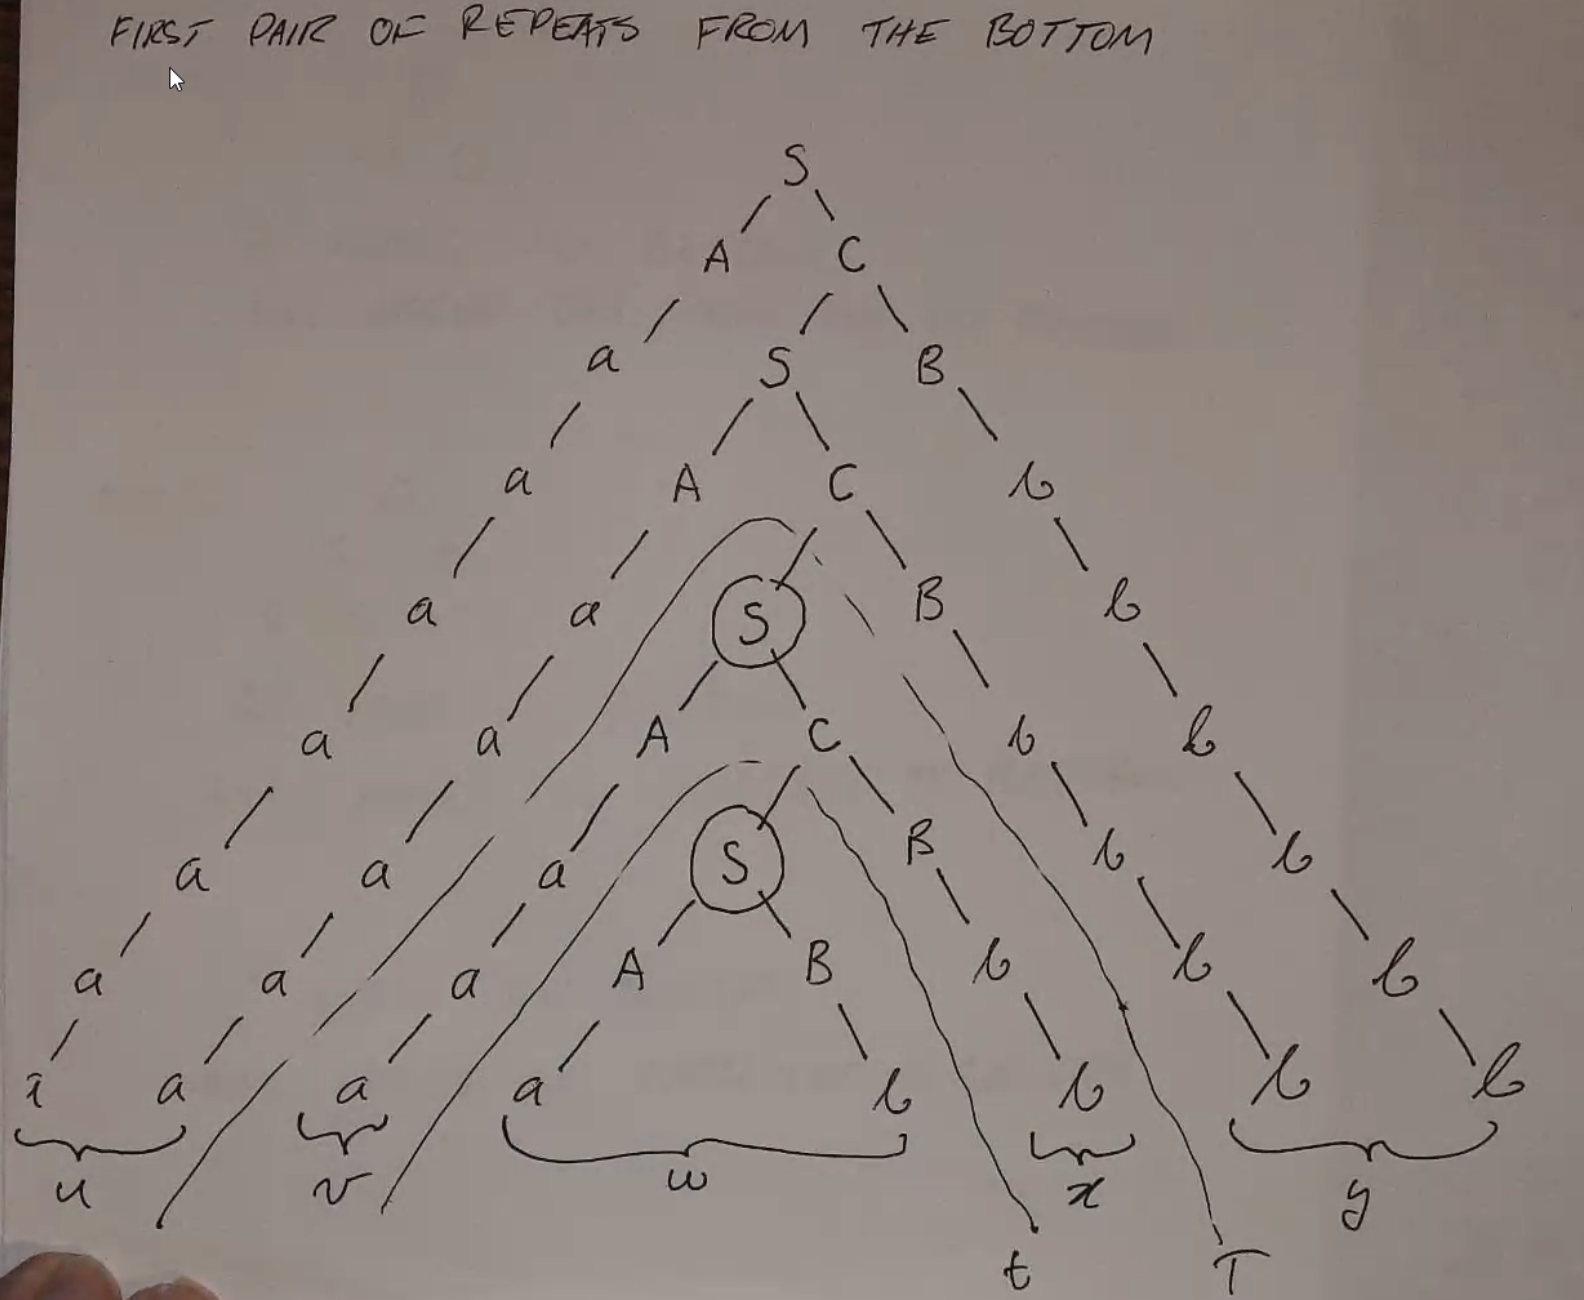 FIRST PAIR OF REPEATS FROM THE BOTTOM
S
A C
a S B
a A C b
a a S B b
a a A C b b
a a a S B b b
a a a A B b b b
a a a a b b b b
u v w x y
t T